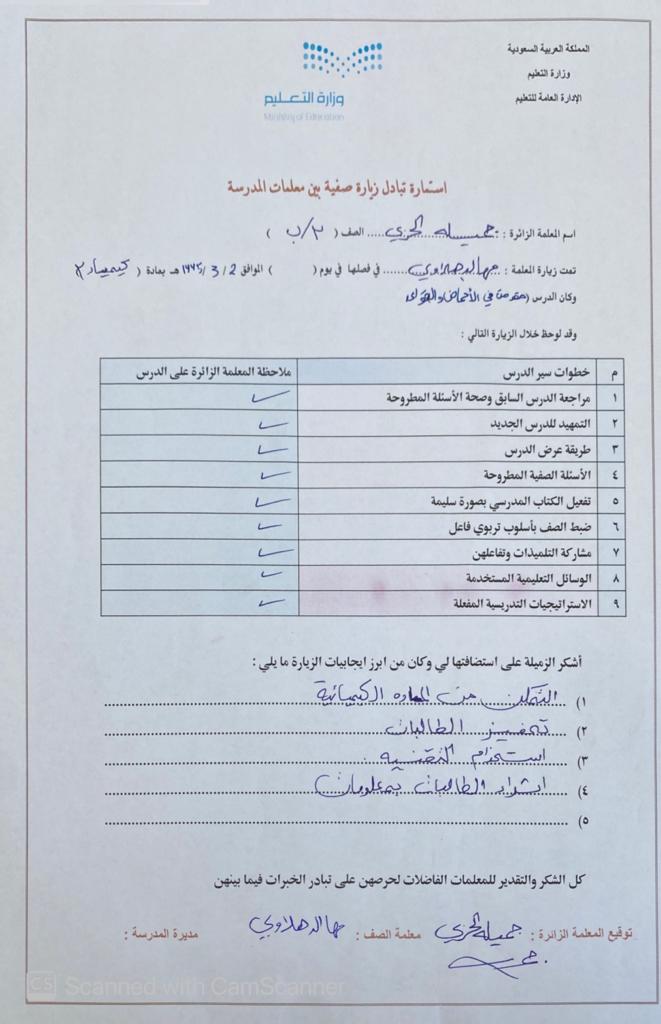 المملكة العربية السعودية
وزارة التعليم
الإدارة العامة للتعليم
وزارة التعـليم
Ministry of Education
استمارة تبادل زيارة صفية بين معلمات المدرسة
اسم المعلمة الزائرة : جميله الحربي الصف ( ٢/ب )
تمت زيارة المعلمة : مها الدهلاوي في فصلها في يوم ( ) الموافق 2 / 3 / ١٤٤٥ هـ بمادة ( كيمياء ٢
وكان الدرس ( مقدمة في الأحماض والقواعد
وقد لوحظ خلال الزيارة التالي :
م خطوات سير الدرس ملاحظة المعلمة الزائرة على الدرس
١ مراجعة الدرس السابق وصحة الأسئلة المطروحة ✓
٢ التمهيد للدرس الجديد ✓
٣ طريقة عرض الدرس ✓
٤ الأسئلة الصفية المطروحة ✓
٥ تفعيل الكتاب المدرسي بصورة سليمة ✓
٦ ضبط الصف بأسلوب تربوي فاعل ✓
٧ مشاركة التلميذات وتفاعلهن ✓
٨ الوسائل التعليمية المستخدمة ✓
٩ الاستراتيجيات التدريسية المفعلة ✓
أشكر الزميلة على استضافتها لي وكان من ابرز ايجابيات الزيارة ما يلي :
١) التمكن من الماده الكيميائية
٢) تحفيز الطالبات
٣) استخدام التقنيه
٤) اثراء الطالبات بمعلومات
٥)
كل الشكر والتقدير للمعلمات الفاضلات لحرصهن على تبادر الخبرات فيما بينهن
توقيع المعلمة الزائرة : جميله الحربي معلمة الصف : مها الدهلاوي مديرة المدرسة :
CS Scanned with CamScanner